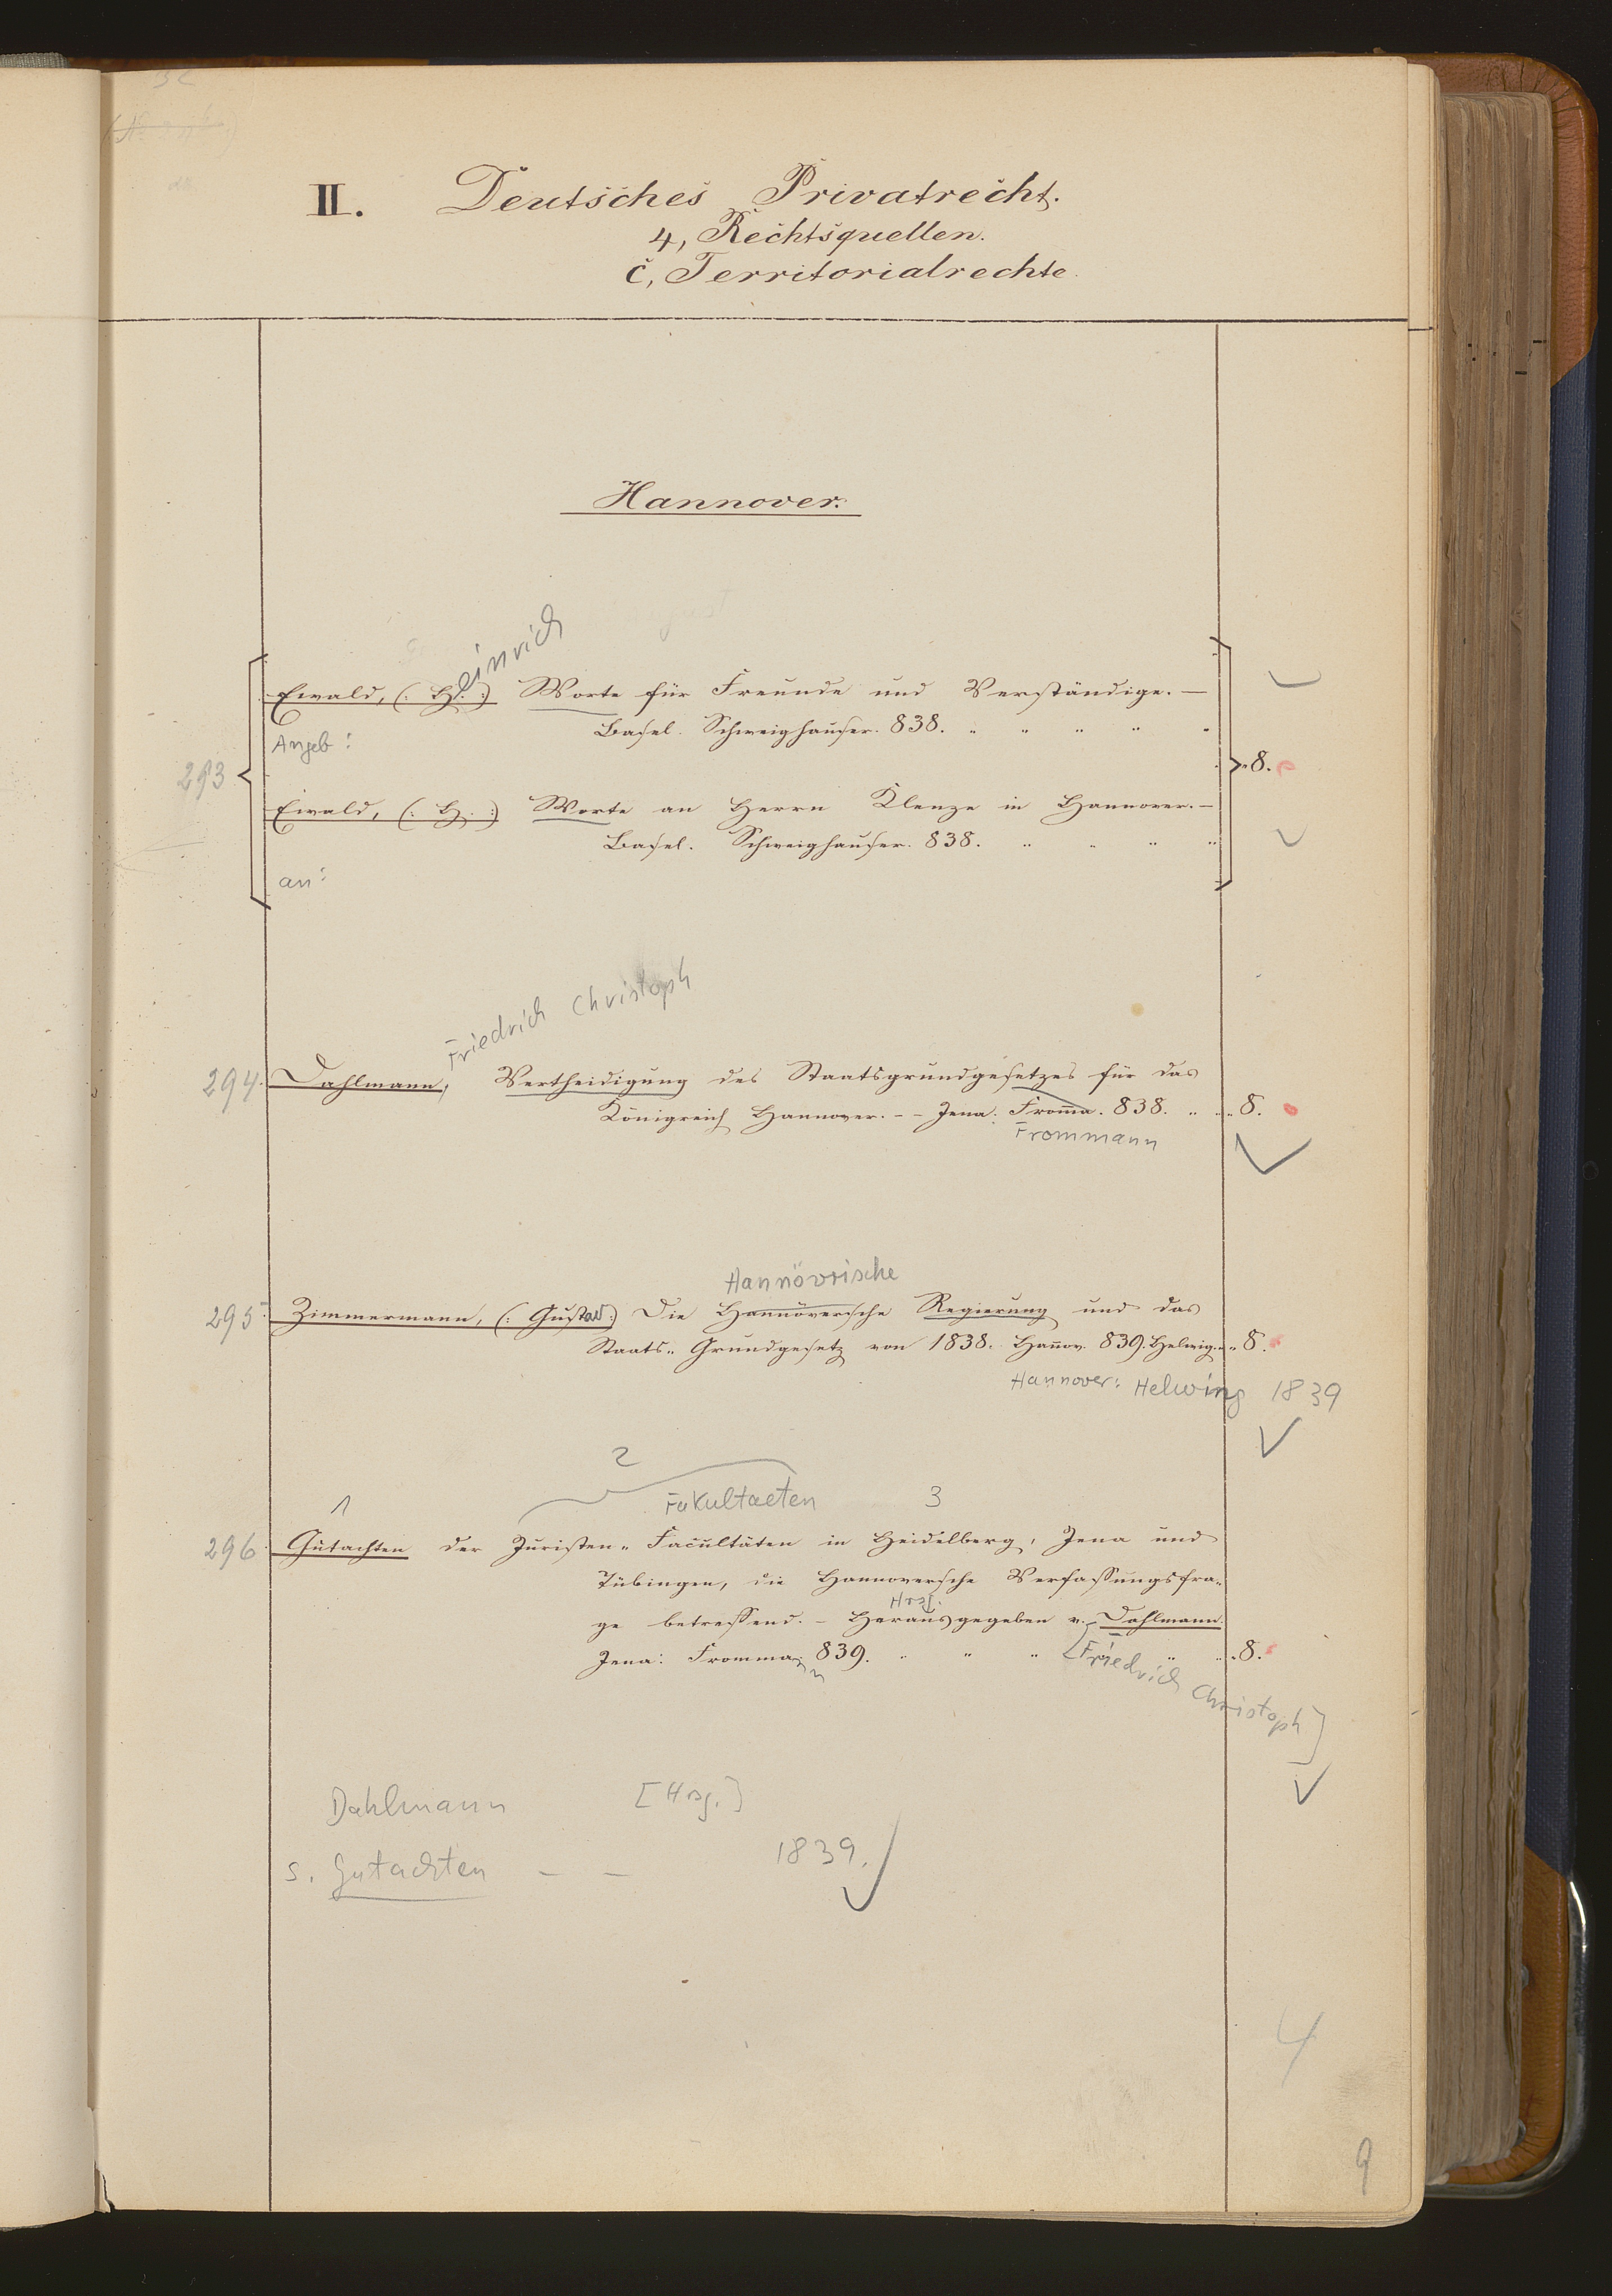 II. Deutsches Privatrecht.
4, Rechtsquellen.
c, Territorialrechte.
Hannover.
einrich
Ewald, (: H. :) Worte für Freunde und Verständige. —
Basel. Schweighauser. 838. " " " "
Angeb:
293 8.
Ewald, (: H. :) Worte an Herrn Klenze in Hannover. —
Basel. Schweighauser. 838. " " " "
an:
Friedrich Christoph
294. Dahlmann, Vertheidigung des Staatsgrundgesetzes für das
Königreich Hannover. - - Jena. Froma. 838. " " " 8.
Frommann
Hannövrische
295. Zimmermann, (: Gustav :) Die Hannöversche Regierung und das
Staats- Grundgesetz von 1838. Hannov. 839. Helwig. " 8.
Hannover: Helwing 1839
2
1 Fakultaeten 3
296. Gutachten der Juristen- Facultäten in Heidelberg, Jena und
Tübingen, die Hannoversche Verfassungsfra-
Hrsg.
ge betreffend. - Herausgegeben v. Dahlmann.
Jena: Fromman 839. " " " " " 8.
n
[Friedrich Christoph]
Dahlmann [Hrsg.]
s. Gutachten — — 1839.
4
9